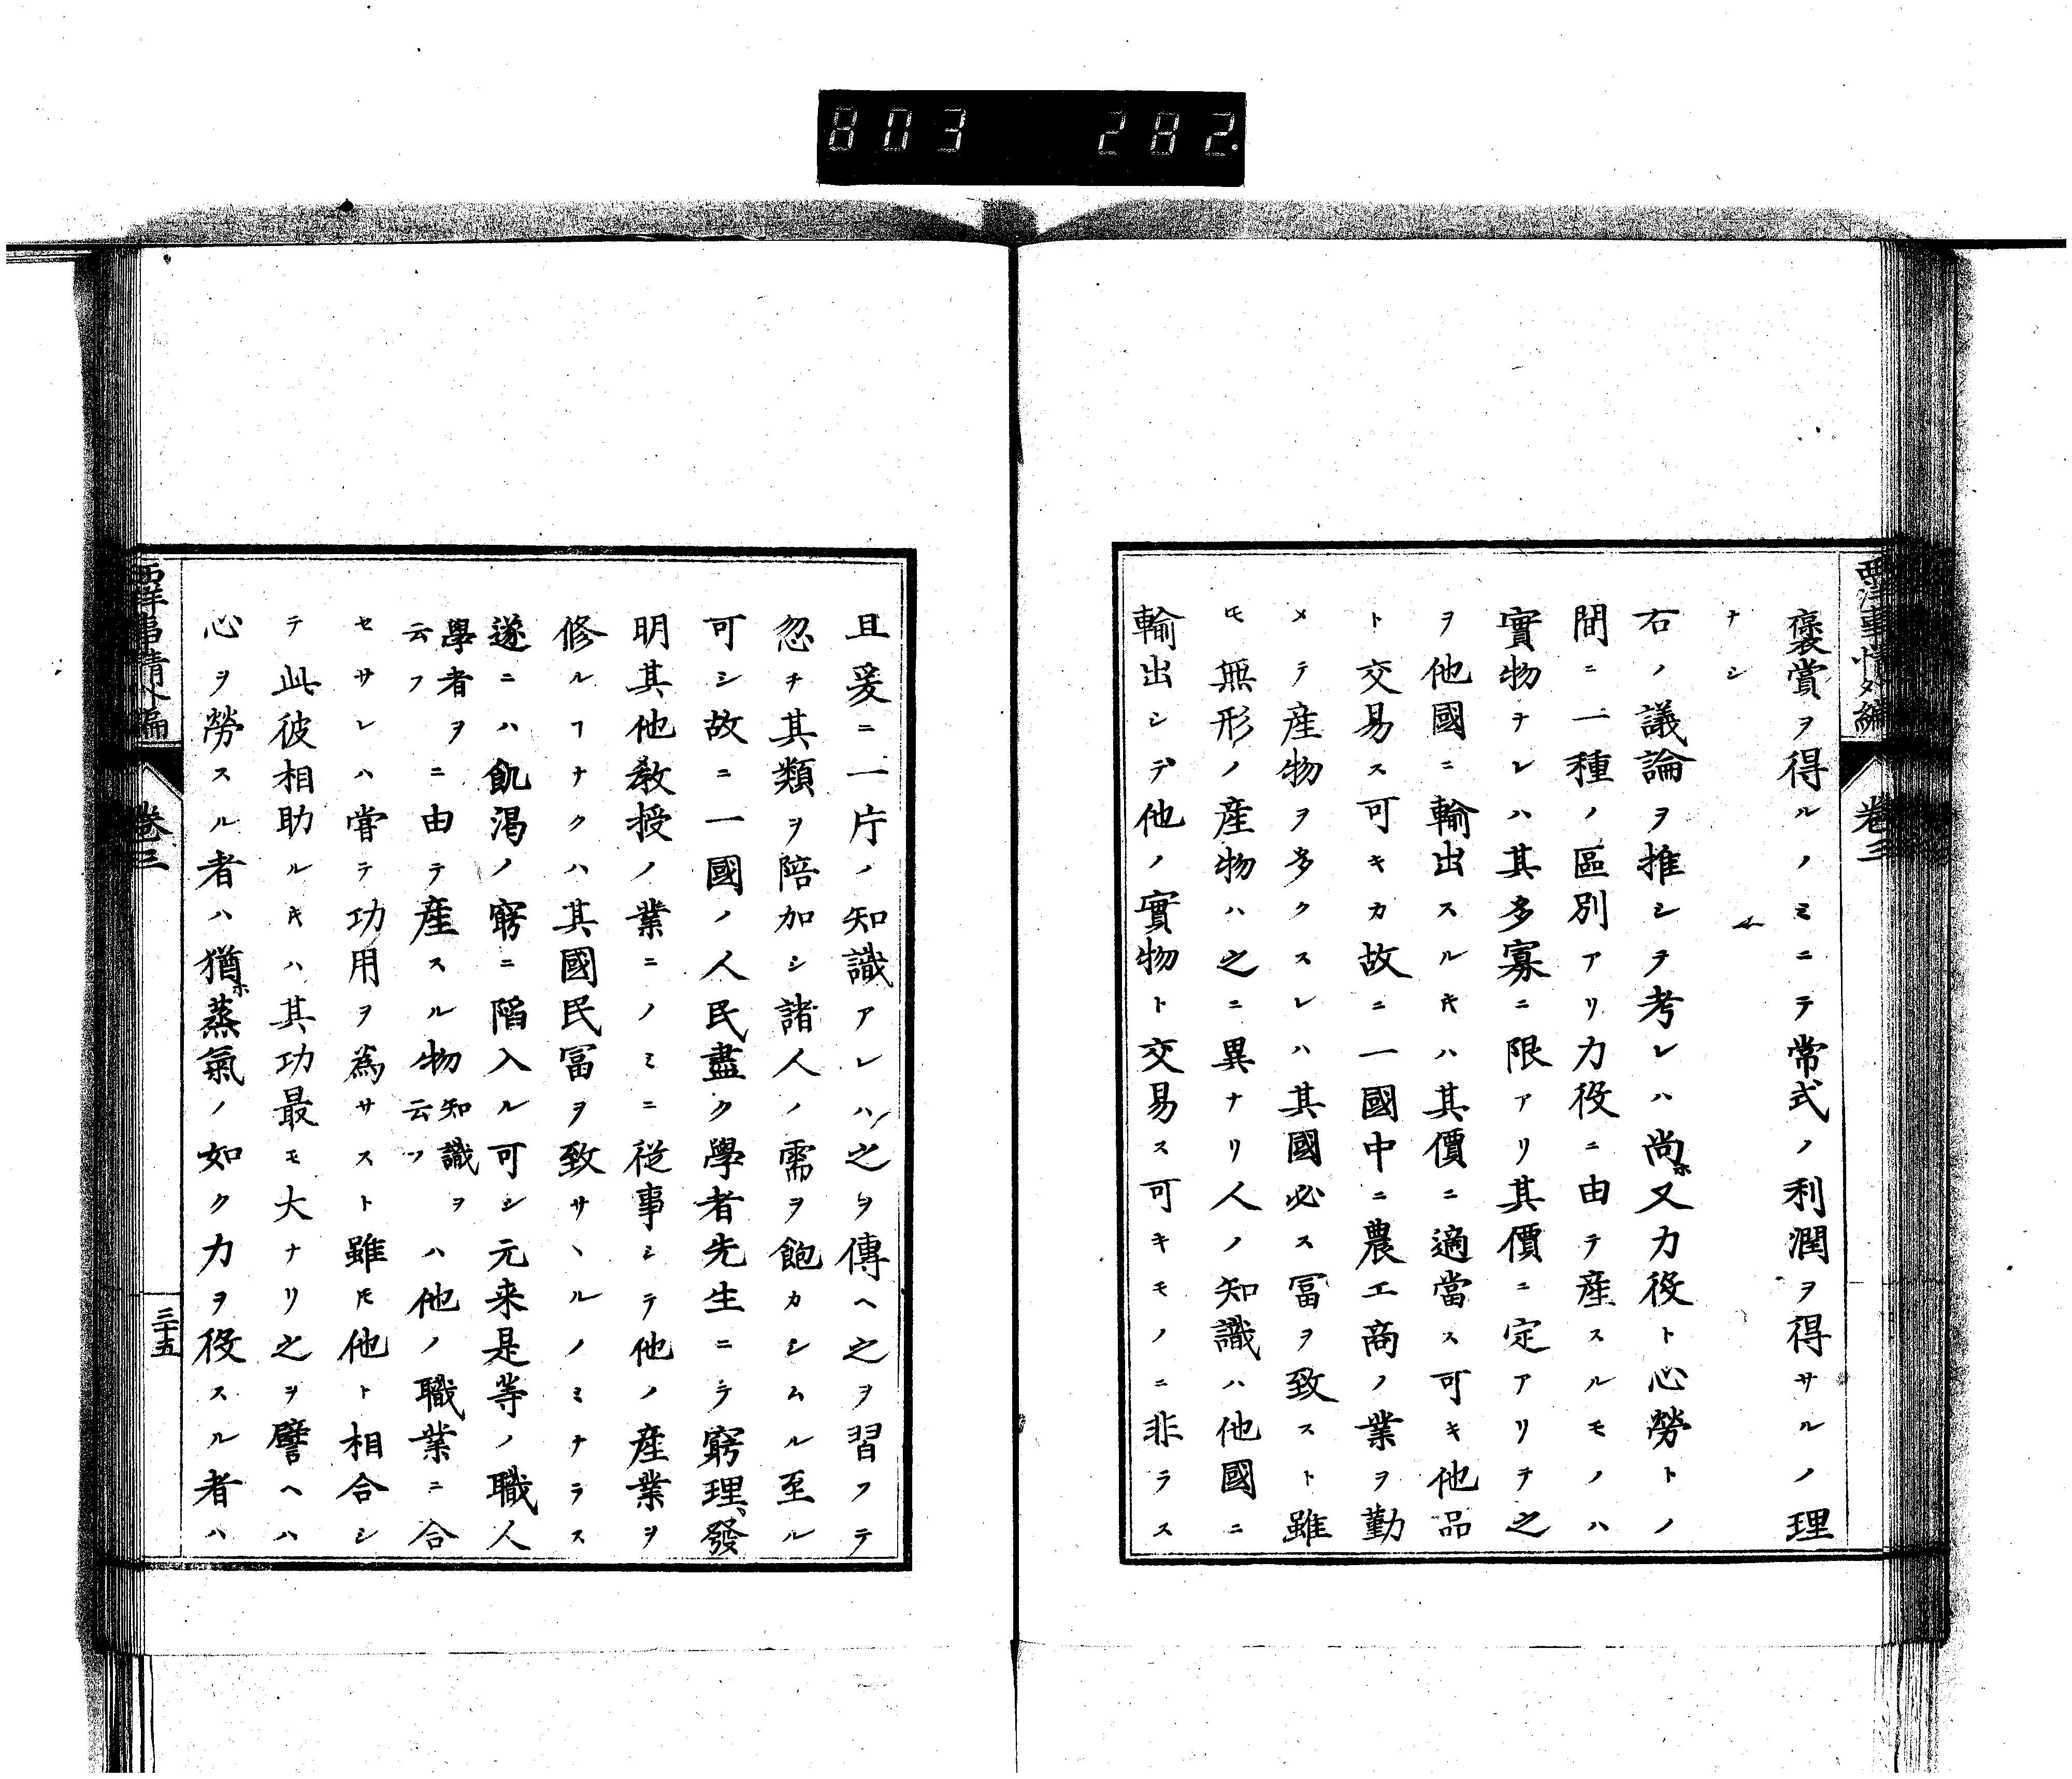 803 282.
西洋事情外編
卷三
褒賞ヲ得ルノミニテ常式ノ利潤ヲ得サルノ理
ナシ
右ノ議論ヲ推シテ考レハ尚ホ又力役ト心勞トノ
間ニ一種ノ區別アリ力役ニ由テ産スルモノハ
實物ナレハ其多寡ニ限アリ其價ニ定アリテ之
ヲ他國ニ輸出スルキハ其價ニ適當ス可キ他品
ト交易ス可キカ故ニ一國中ニ農工商ノ業ヲ勤
メテ産物ヲ多クスレハ其國必ス冨ヲ致スト雖
𪜈無形ノ産物ハ之ニ異ナリ人ノ知識ハ他國ニ
輸出シテ他ノ實物ト交易ス可キモノニ非ラス
且爰ニ一片ノ知識アレハ之ヲ傳ヘ之ヲ習フテ
忽チ其類ヲ陪加シ諸人ノ需ヲ飽カシムル至ル
可シ故ニ一國ノ人民盡ク學者先生ニテ窮理、發
明其他教授ノ業ニノミニ從事シテ他ノ産業ヲ
修ルヿナクハ其國民冨ヲ致サヽルノミナラス
遂ニハ飢渇ノ窮ニ陷入ル可シ元来是等ノ職人
學者ヲ云フニ由テ産スル物知識ヲ云フハ他ノ職業ニ合
セサレハ嘗テ功用ヲ為サスト雖𪜈他ト相合シ
テ此彼相助ルキハ其功最モ大ナリ之ヲ譬ヘハ
心ヲ勞スル者ハ猶ホ蒸氣ノ如ク力ヲ役スル者ハ
西洋事情外編
卷三
三十五